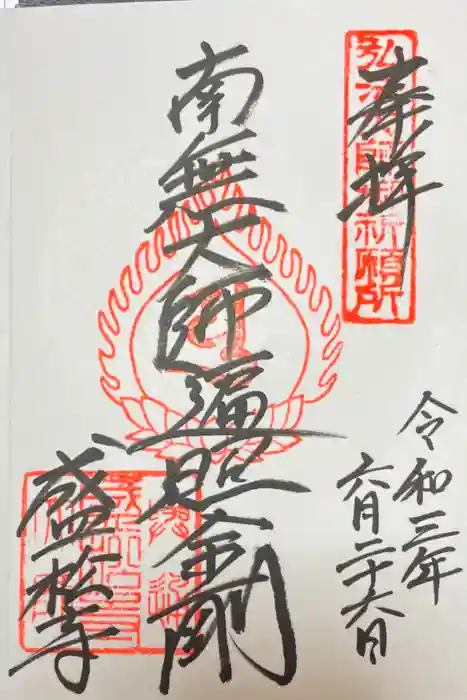 奉拝
弘法 祈願所
令和三年
六月二十六日
南無大師遍照金剛
盛松寺